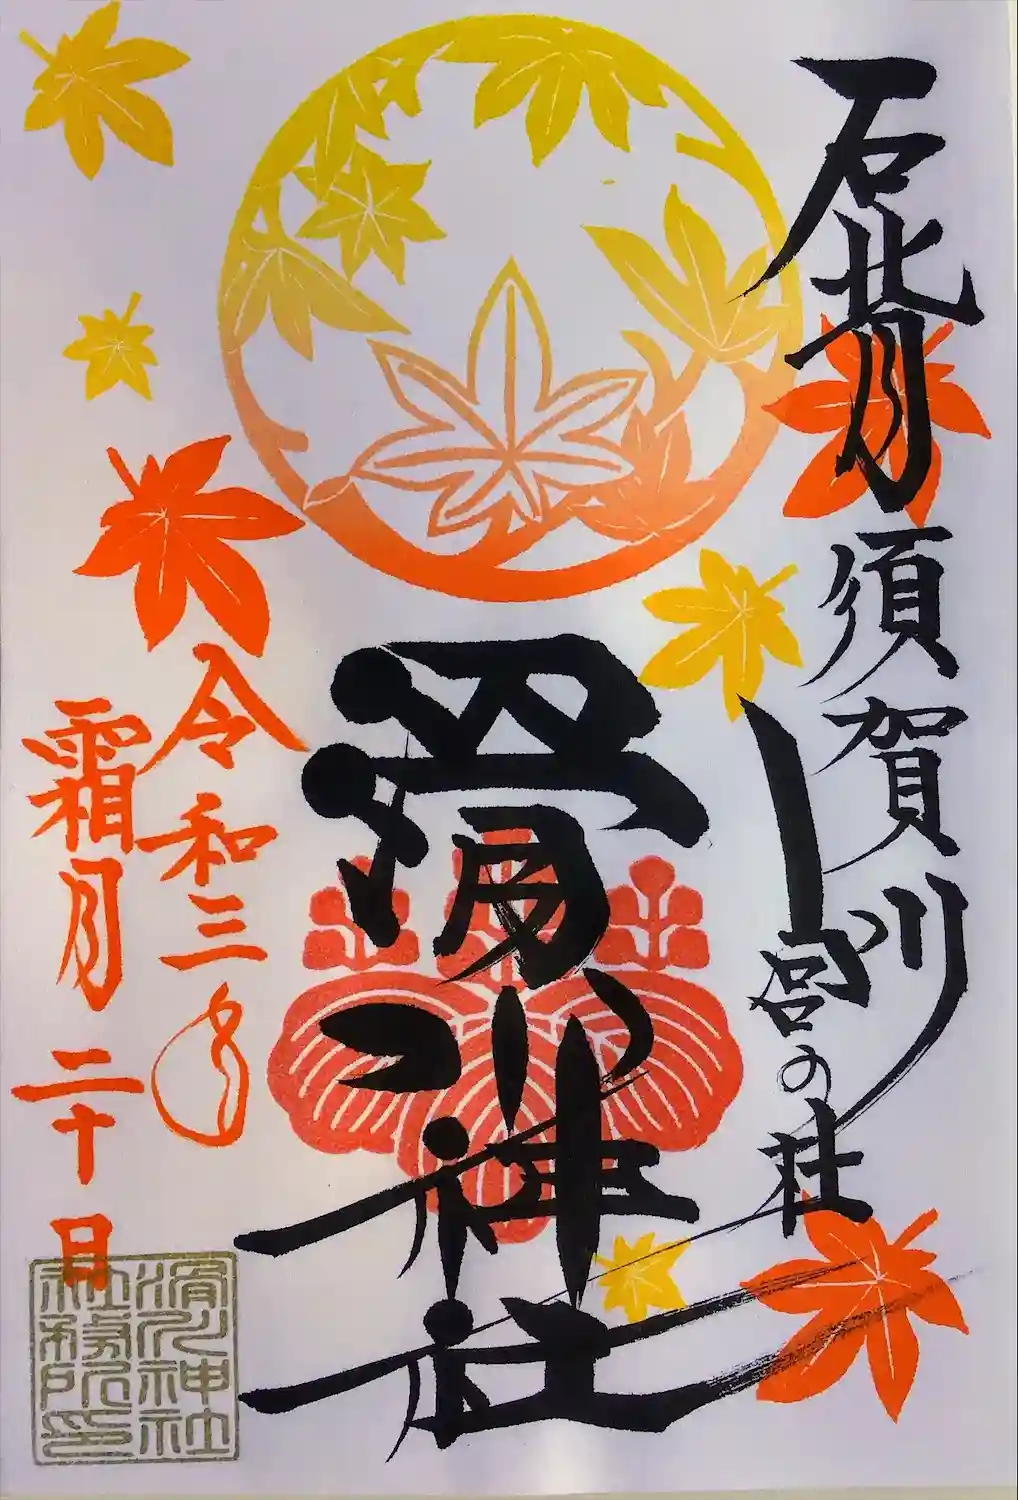 石背 須賀川
宮の杜
滑川神社
令和三年
霜月二十日
滑川神社
社務所印